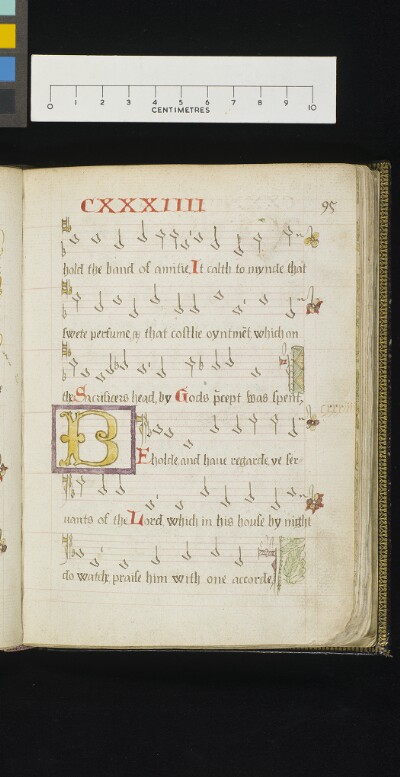 0 1 2 3 4 5 6 7 8 9 10
CENTIMETRES
CXXXIIII 95
hold the band of amitie, It calth to mynde that
swete perfume, & that costlie oyntmēt which on
the Sacrificers head, by Gods p̄cept was spent,
BEholde and haue regarde, ye ser-
uants of the Lord, which in his house by night
do watch, praise him with one accorde,